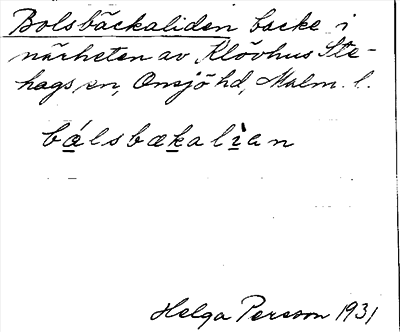 Bolsbäckaliden backe i
närheten av Klövhus Ste-
hags sn, Onsjö hd, Malm. l.
bǻlsbækalìan
Helga Persson 1931